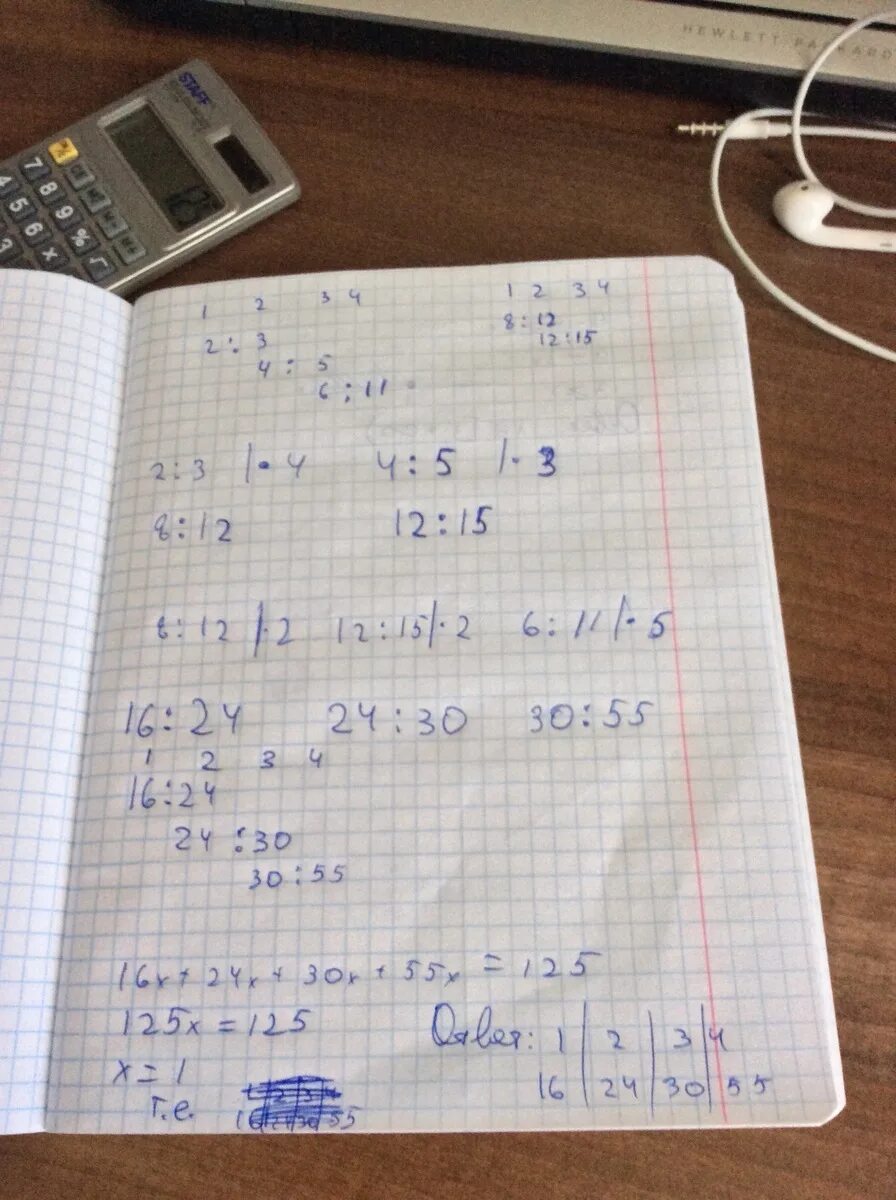 HEWLETT PACKARD
STAFF
7
4 8
5 9 %
3 6 x % √
1 2 3 4
2 : 3
4 : 5
6 : 11
1 2 3 4
8 : 12
12 : 15
2 : 3 | · 4 4 : 5 | · 3
8 : 12 12 : 15
8 : 12 | · 2 12 : 15 | · 2 6 : 11 | · 5
16 : 24 24 : 30 30 : 55
1 2 3 4
16 : 24
24 : 30
30 : 55
16x + 24x + 30x + 55x = 125
125x = 125
x = 1
т.е.
Ответ: 1 | 2 | 3 | 4
16 | 24 | 30 | 55